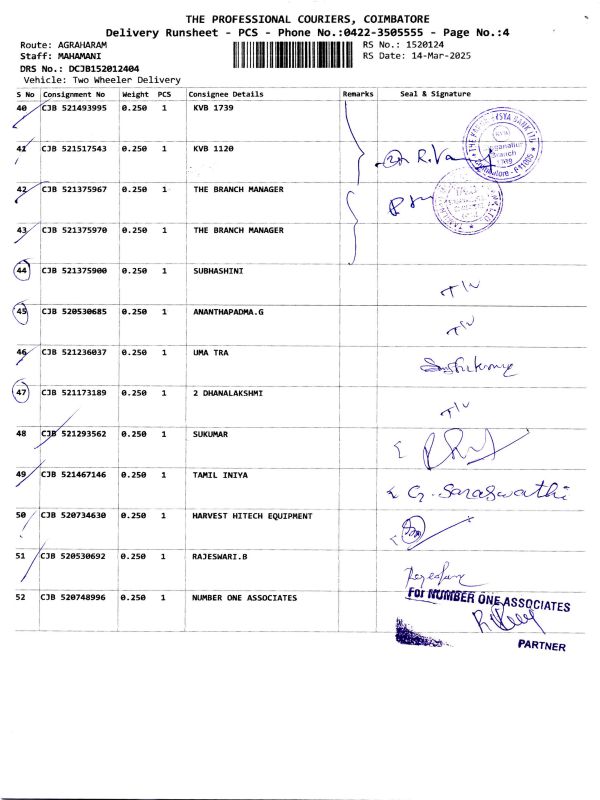 THE PROFESSIONAL COURIERS, COIMBATORE
Delivery Runsheet - PCS - Phone No.:0422-3505555 - Page No.:4
Route: AGRAHARAM RS No.: 1520124
Staff: MAHAMANI RS Date: 14-Mar-2025
DRS No.: DCJB152012404
Vehicle: Two Wheeler Delivery
S No Consignment No Weight PCS Consignee Details Remarks Seal & Signature
40 CJB 521493995 0.250 1 KVB 1739
41 CJB 521517543 0.250 1 KVB 1120
R.Va
42 CJB 521375967 0.250 1 THE BRANCH MANAGER
43 CJB 521375970 0.250 1 THE BRANCH MANAGER
44 CJB 521375900 0.250 1 SUBHASHINI
T/L
45 CJB 520530685 0.250 1 ANANTHAPADMA.G
T/L
46 CJB 521236037 0.250 1 UMA TRA
47 CJB 521173189 0.250 1 2 DHANALAKSHMI
T/L
48 CJB 521293562 0.250 1 SUKUMAR
49 CJB 521467146 0.250 1 TAMIL INIYA
G. Saraswathi
50 CJB 520734630 0.250 1 HARVEST HITECH EQUIPMENT
51 CJB 520530692 0.250 1 RAJESWARI.B
52 CJB 520748996 0.250 1 NUMBER ONE ASSOCIATES
For NUMBER ONE ASSOCIATES
PARTNER